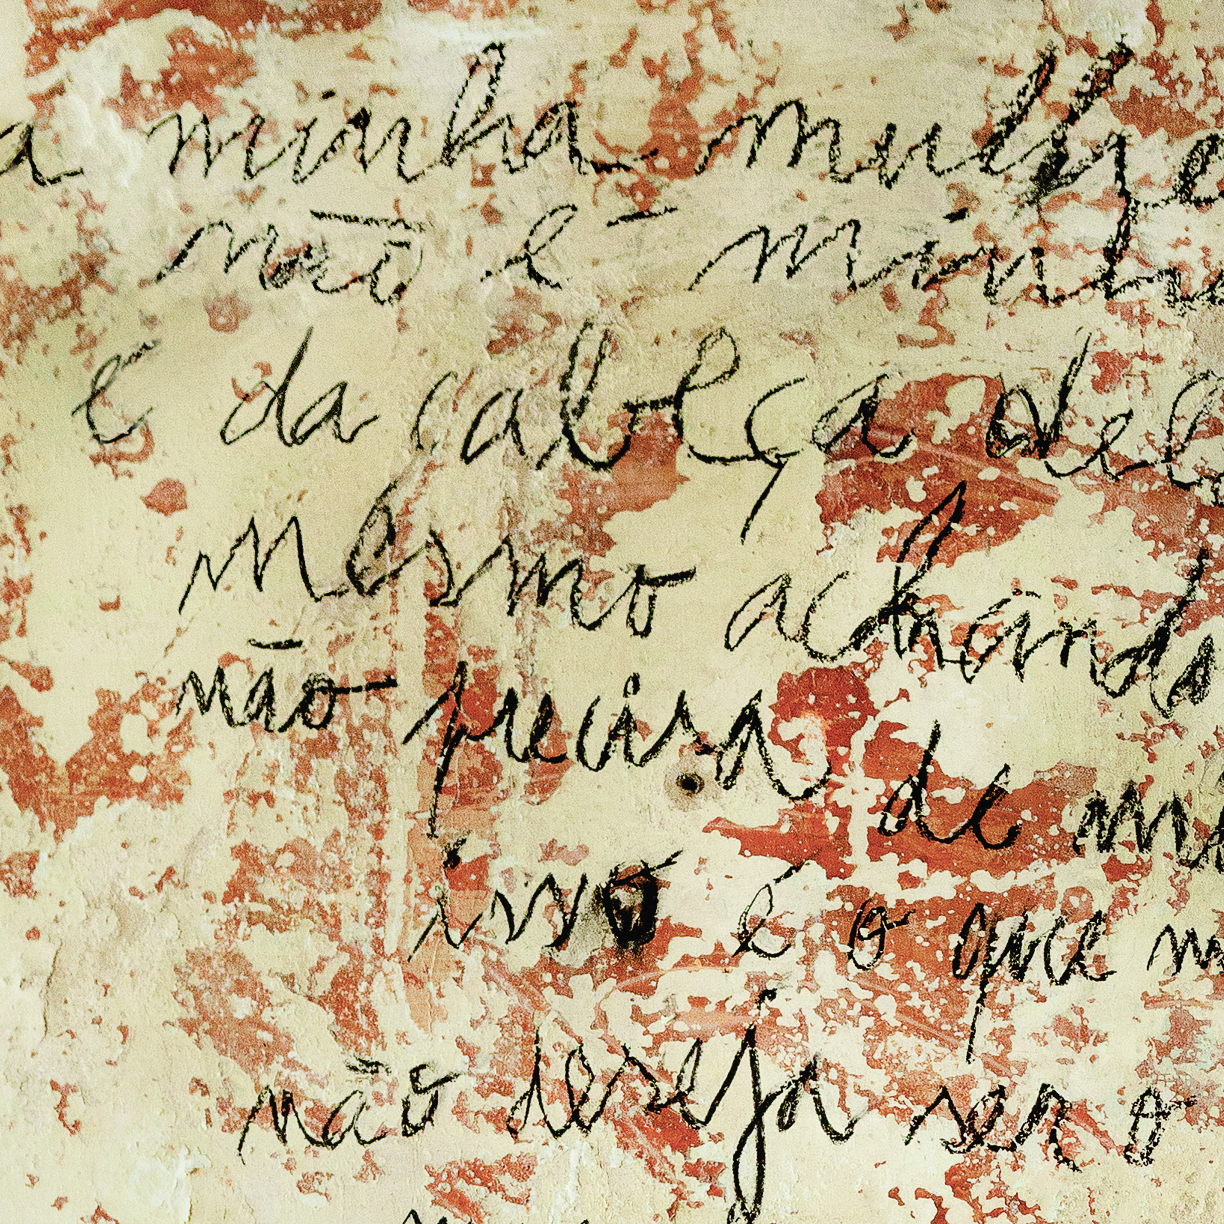 a minha mulhe
não é minh
é da cabeça del
mesmo achando
não precisa de m
isso é o que m
não deseja ser o